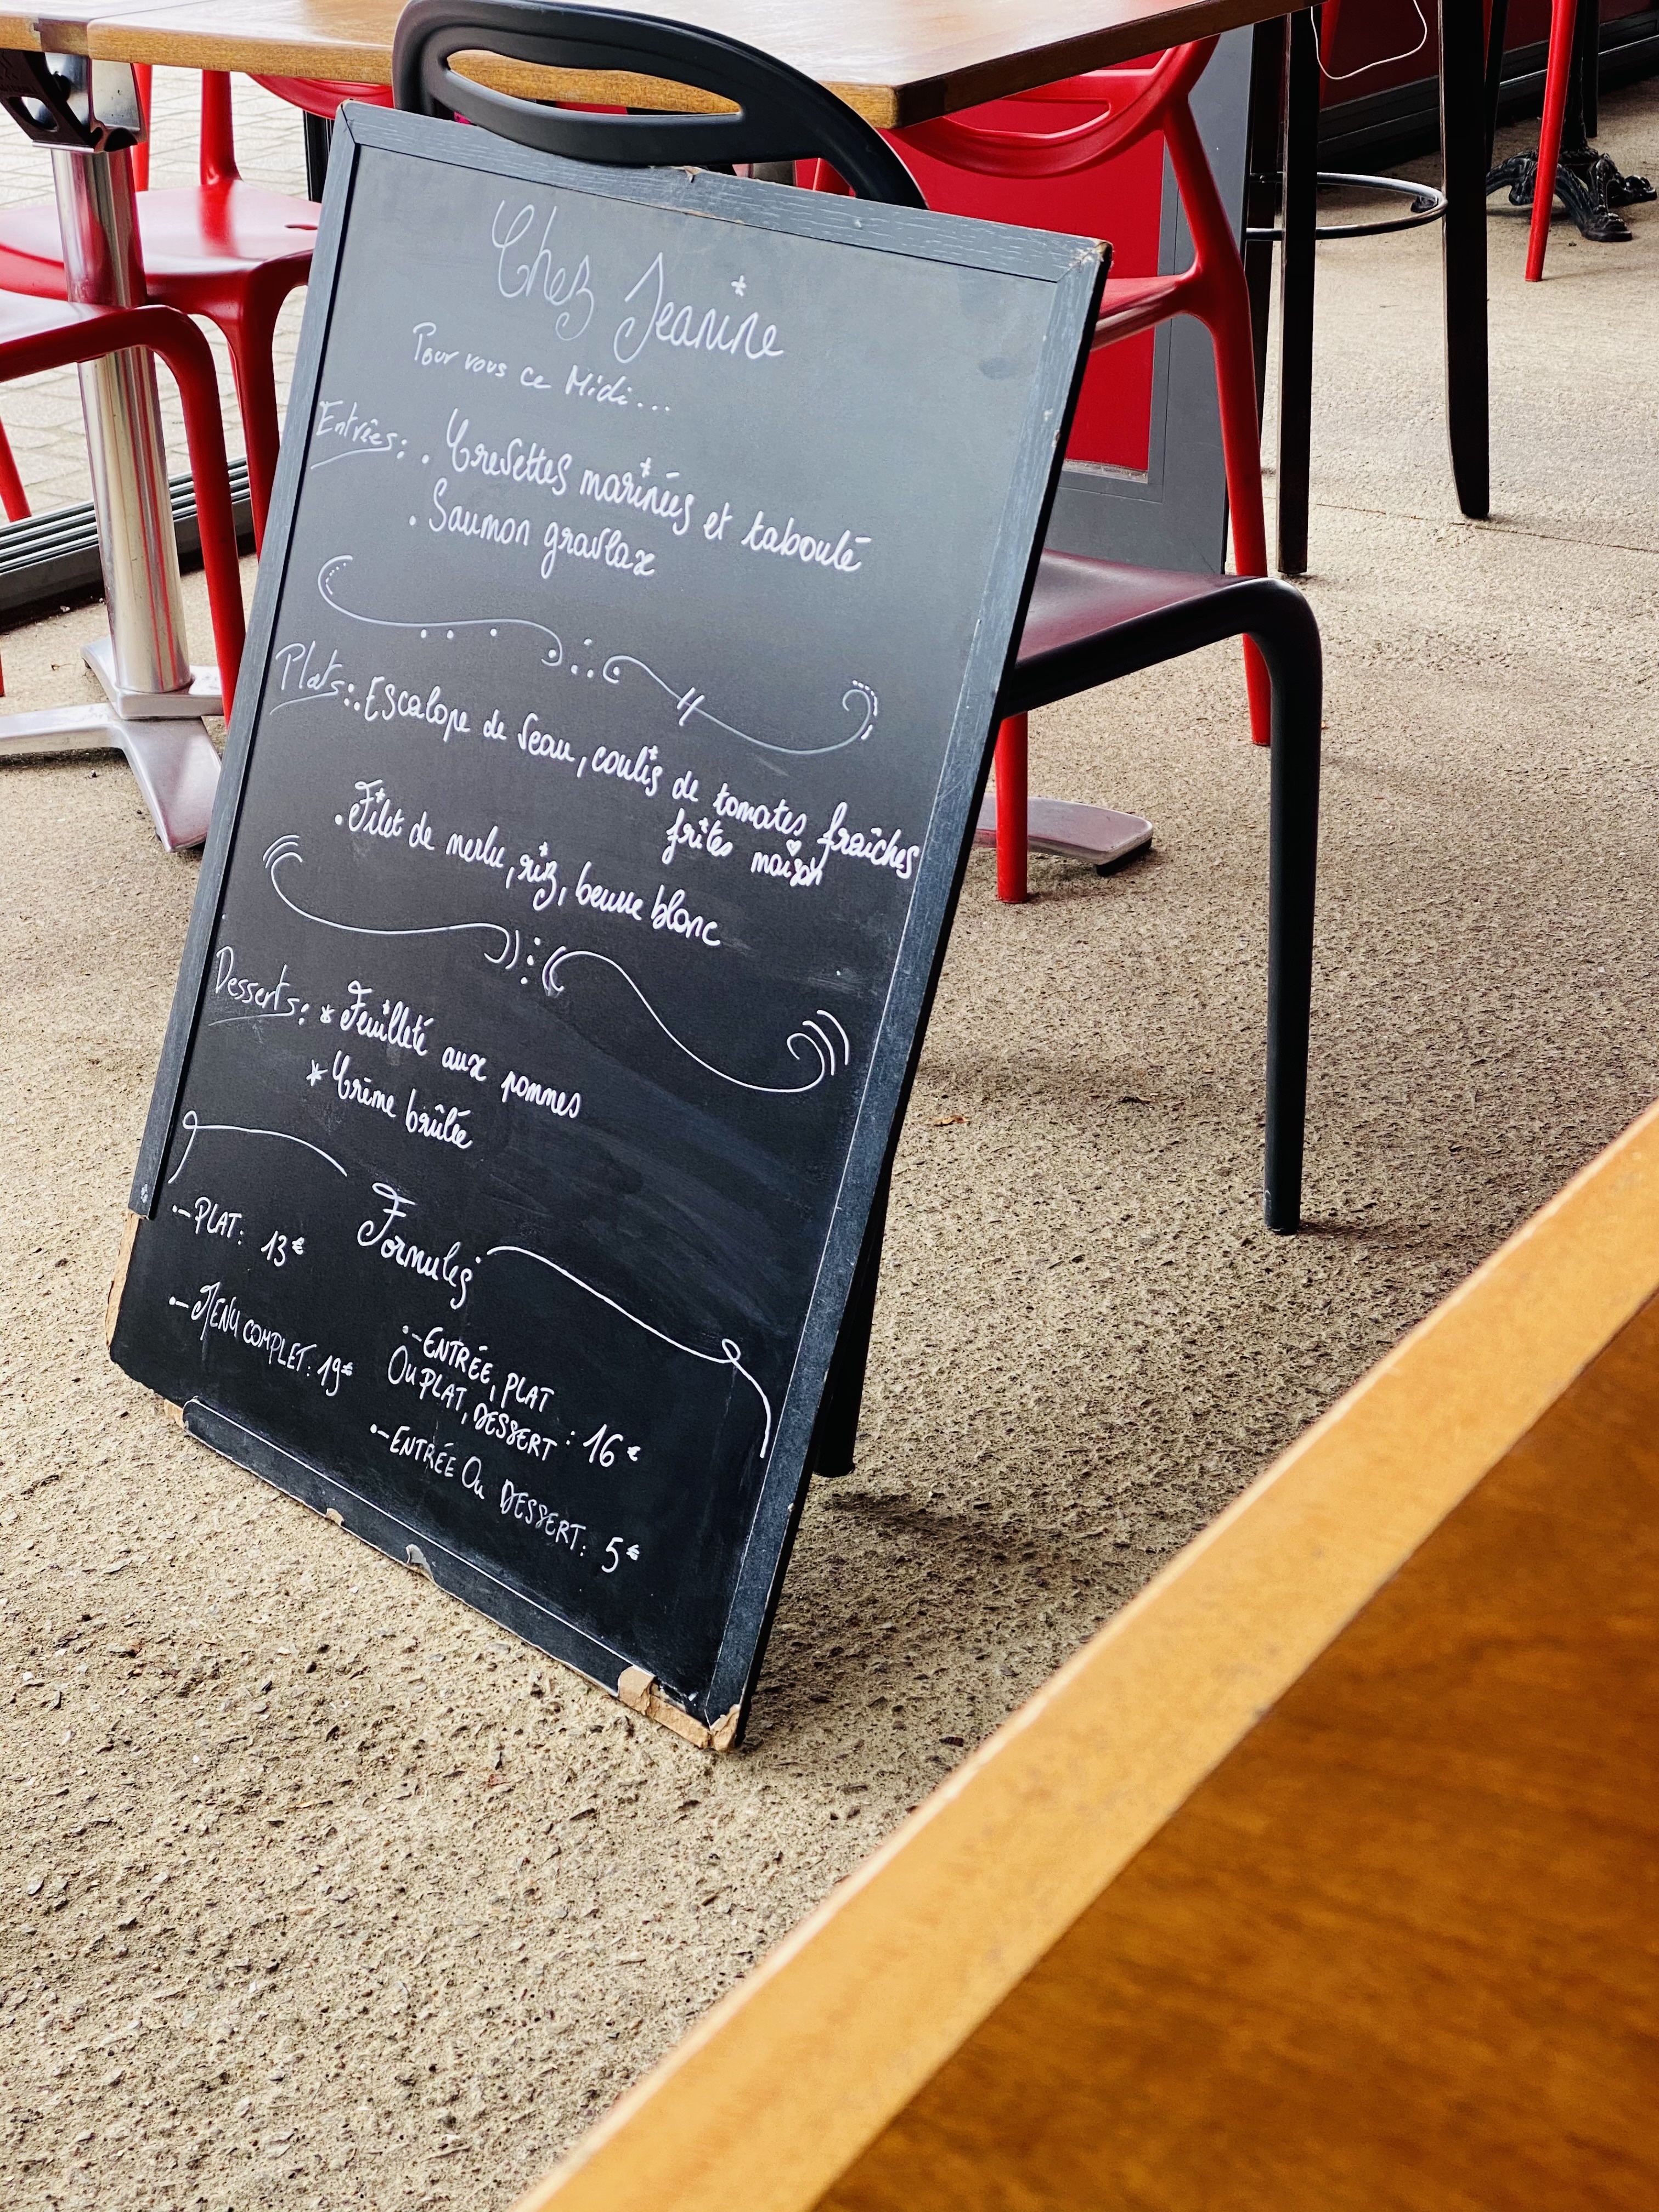 Chez Jeanine
Pour vous ce Midi...
Entrées: . Crevettes marinées et taboulé
. Saumon gravlax
Plats: . Escalope de veau, coulis de tomates fraîches
frites maison
. Filet de merlu, riz, beurre blanc
Desserts: * Feuilleté aux pommes
* Crème brûlée
Formules
- PLAT: 13€
- MENU COMPLET: 19€
- ENTRÉE, PLAT
OU PLAT, DESSERT: 16€
- ENTRÉE OU DESSERT: 5€